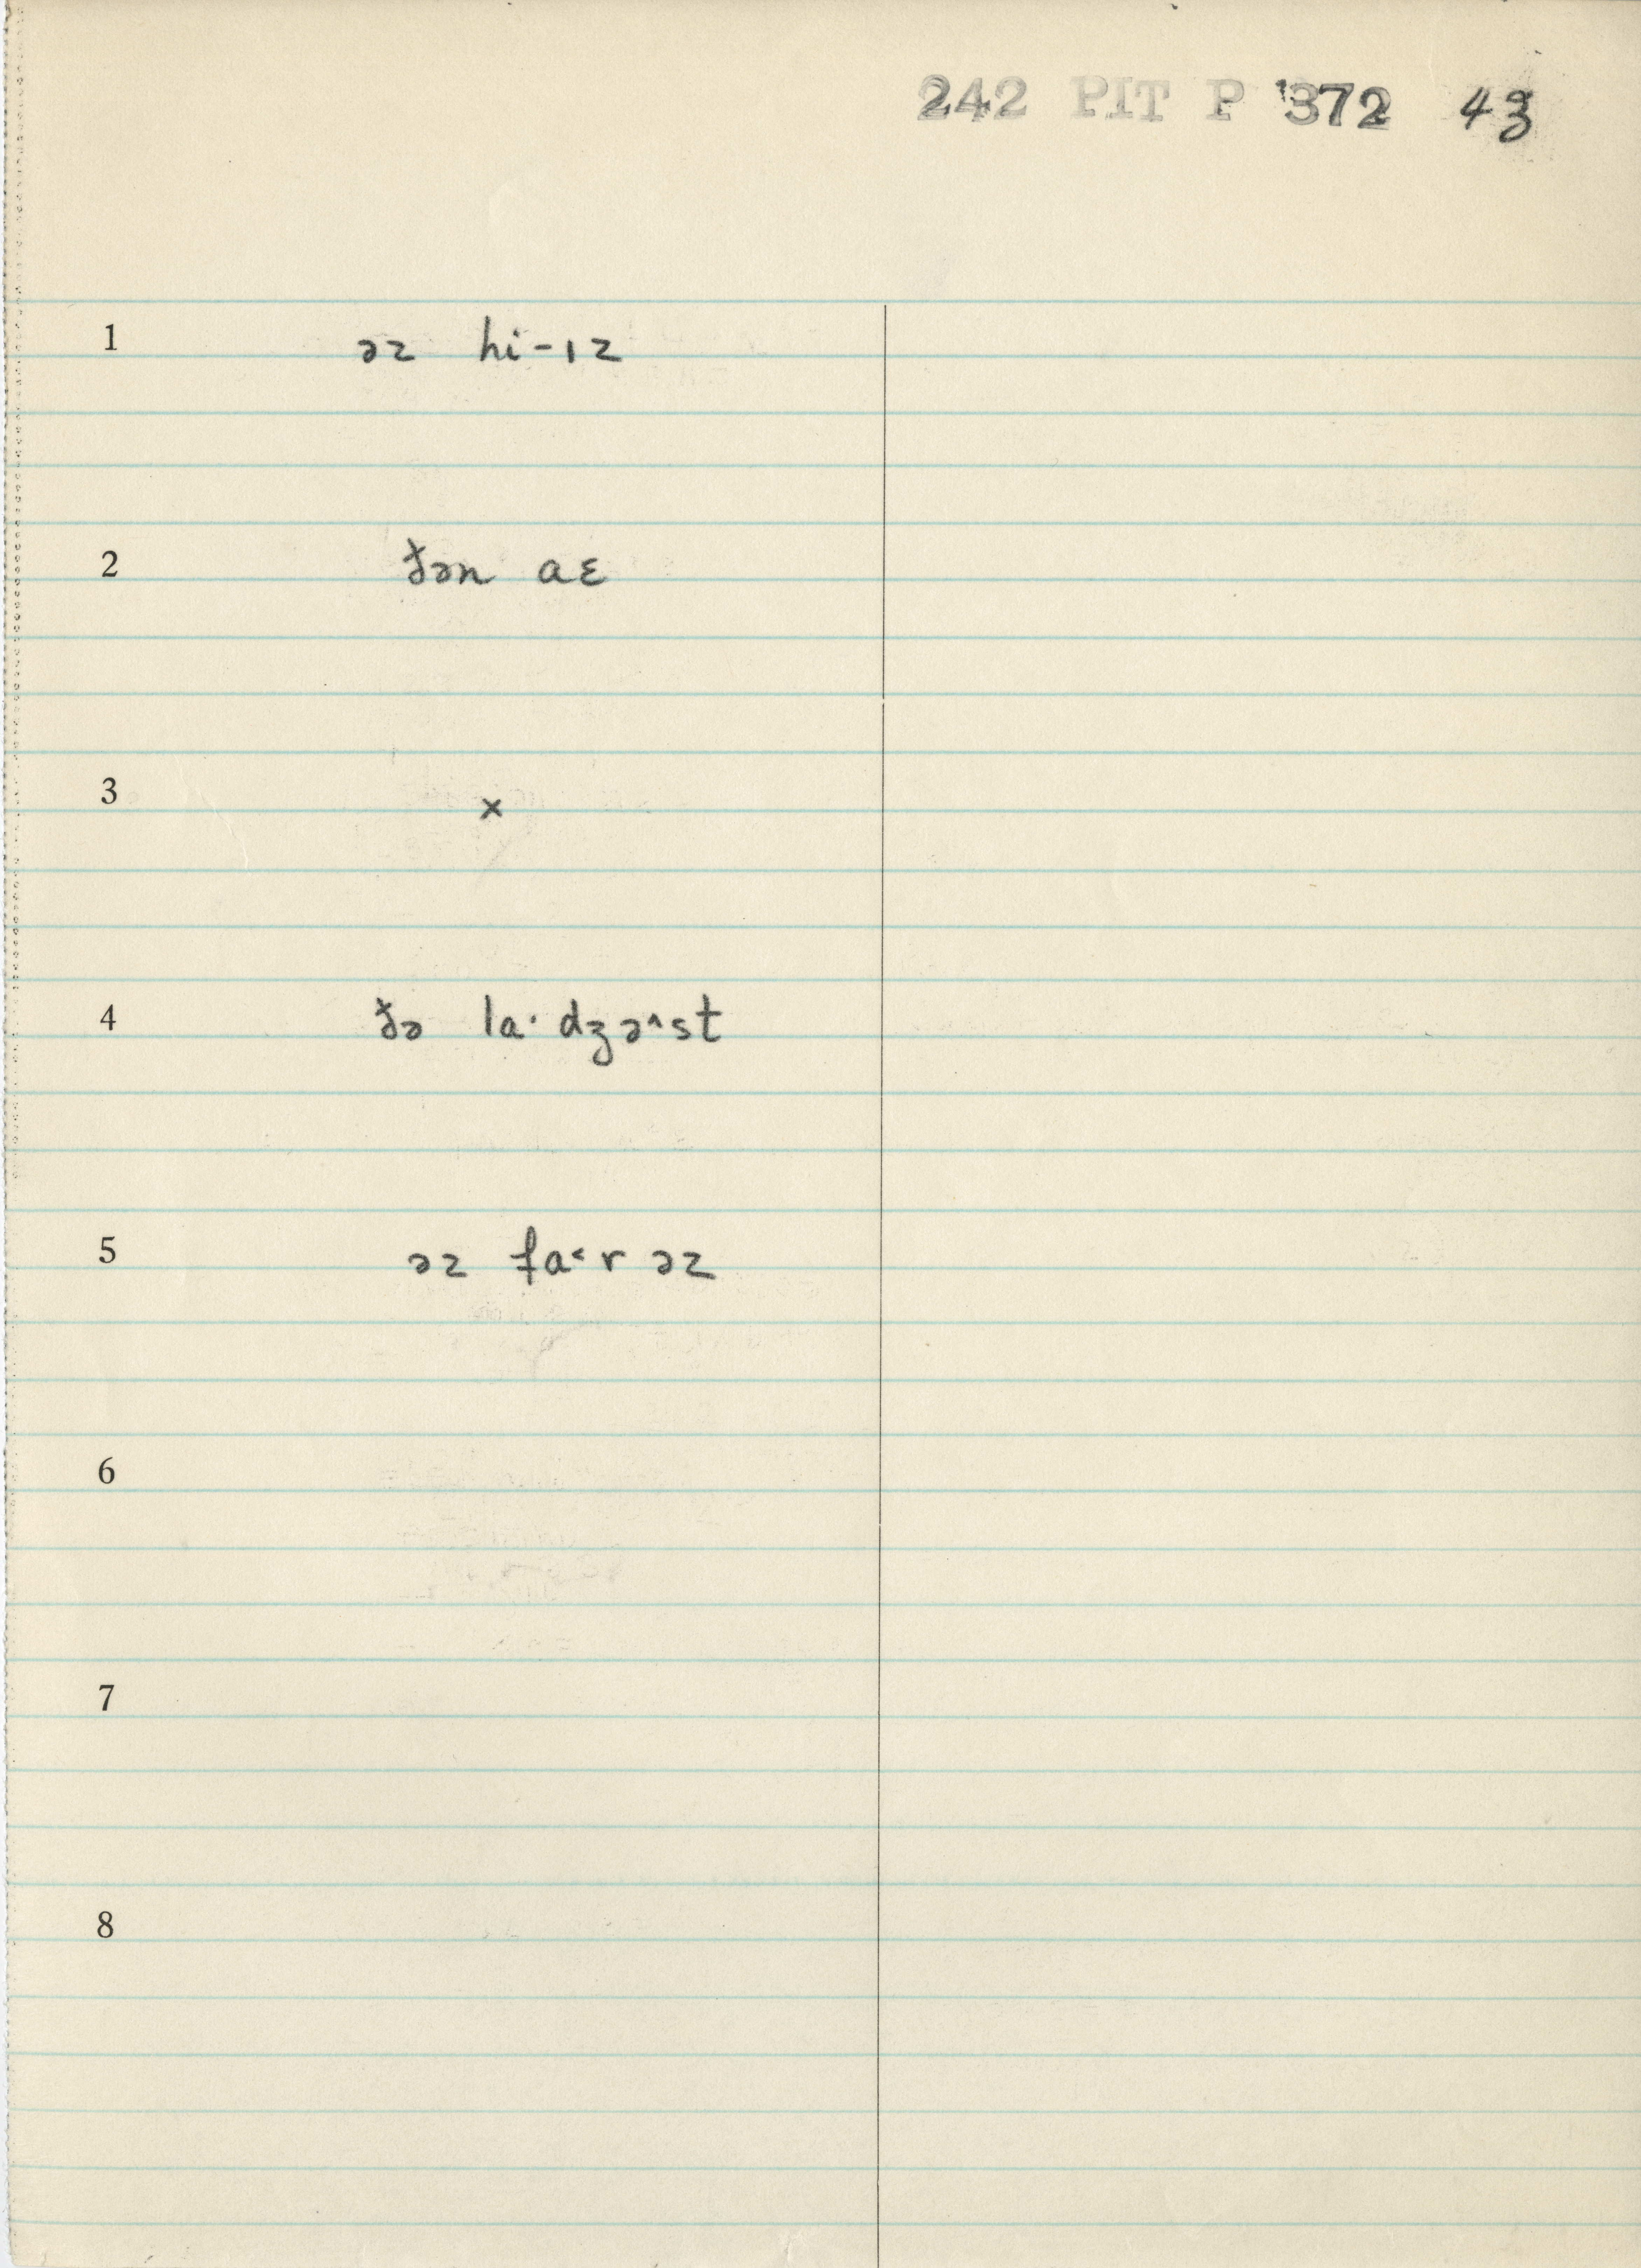 242 PIT P 372 43
1 əz hi-ɪz
2 ðən aɛ
3 x
4 ðə la· dʒə^st
5 əz fa˂r əz
6
7
8